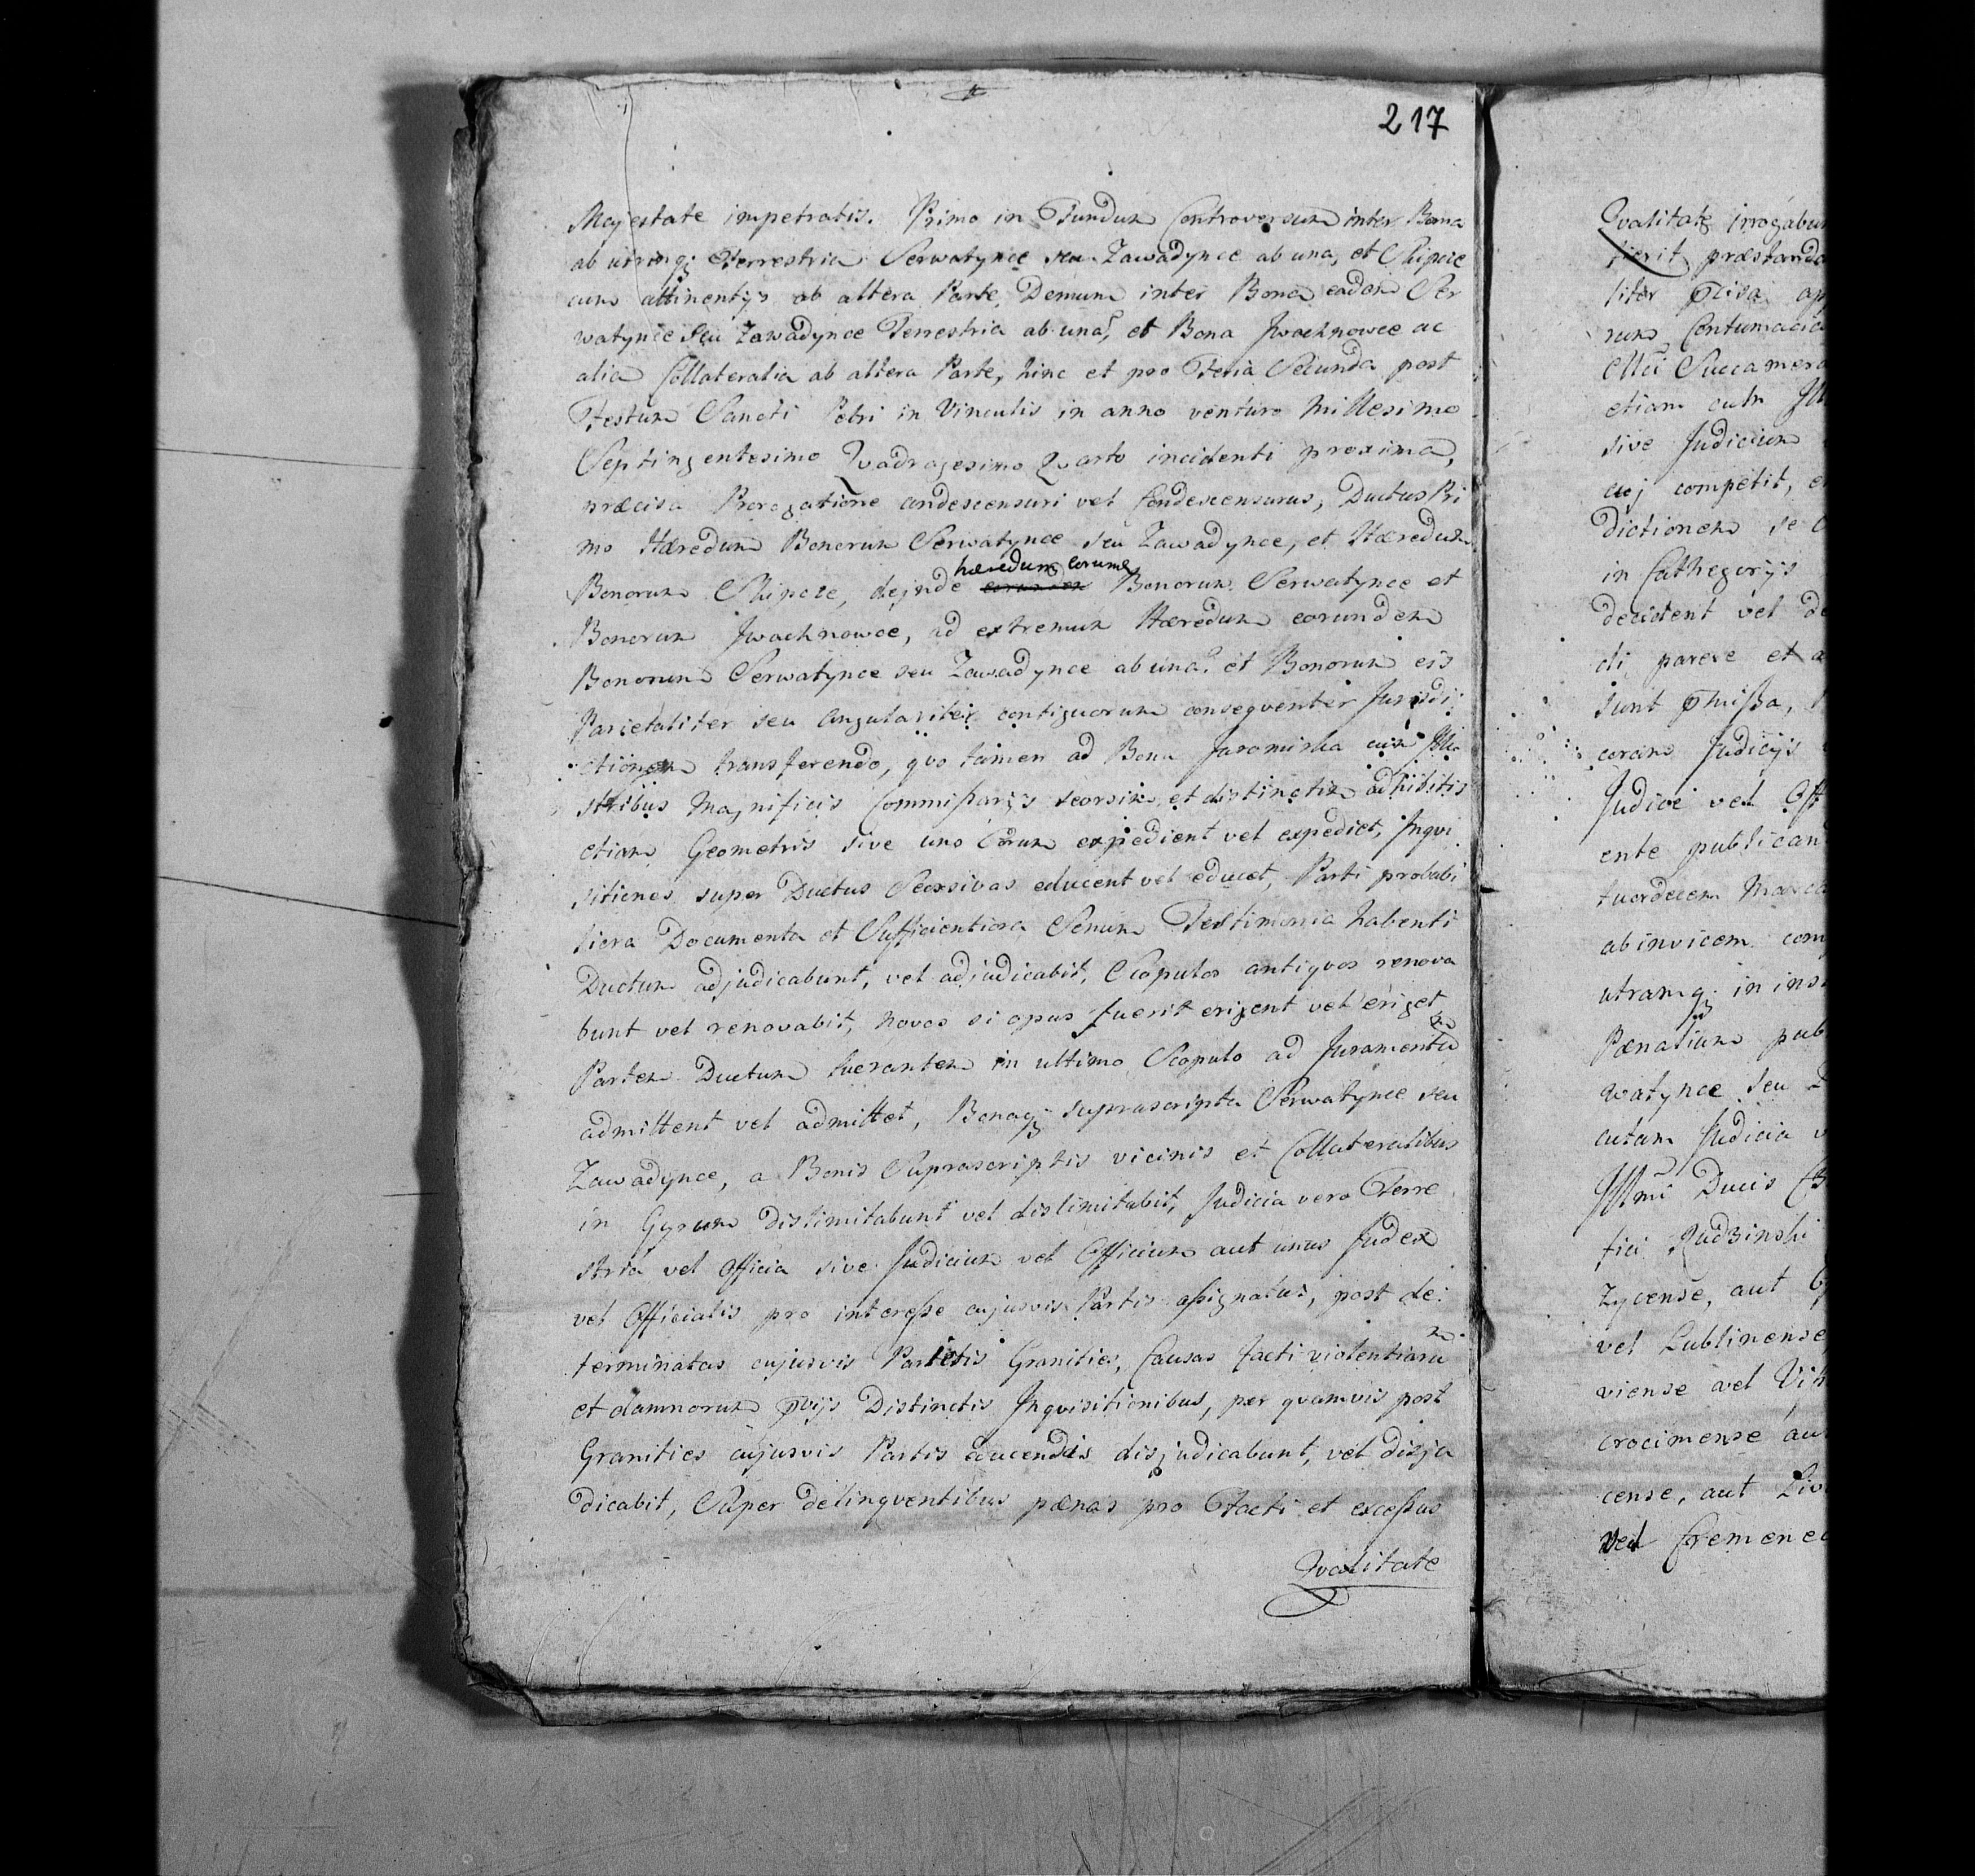 217
Majestate impetratis. Primo in Fundum Controversum inter Bona
ab utrinq; Terrestria Serwatynce seu Zawadynce ab una, et
cum attinentys ab altera Parte, Demum inter Bona eadem Ser
watynce seu Zawadynce Terrestria ab una, et Bona Jwachnowce ac
alia Collateralia ab altera Parte, hinc et pro Feria Secunda post
Festum Sancti Petri in Vinculis in anno venturo Millesimo
Septingentesimo Qvadragesimo Qvarto incidenti proxima,
præcisa Prorogatione condescensuri vel Condescensurus, Ductus Pri
mo Hæredum Bonorum Serwatynce seu Zawadynce, et Hæredum
hæredum eorum
Bonorum dejnde Bonorum Serwatynce et
Bonorum Jwachnowce, ad extremum Hæredum eorundem
Bonorum Serwatynce seu Zawadynce ab una et Bonorum eis
Parietaliter seu Angulariter contiguorum conseqventer Jurisdi
ctionem transferendo, qvo tamen ad Bona Jaromirka cum Jllu
stribus Magnificis Commissarijs seorsim et distinctim adhibitis
etiam Geometris sive uno Eorum expedient vel expediet, Jnqvi
sitiones super Ductus Seorsivas educent vel educet, Parti probabi
liora Documenta et Sufficientiora Senum Testimonia habenti
Ductum adjudicabunt, vel adjudicabit, Scopulos antiqvos renova
bunt vel renovabit, novos si opus fuerit erigent vel eriget
Partem Ductum lucrantem in ultimo Scopulo ad Juramentu
m
admittent vel admittet, Bonaq; suprascripta Serwatynce seu
Zawadynce, a Bonis Suprascriptis vicinis et Collateralibus
in Gyrum dislimitabunt vel dislimitabit, Judicia vero Terre
stria vel Officia sive Judicium vel Officium aut unus Judex
vel Officialis pro interesse cujusvis Partis assignatus, post de
terminatas cujusvis Parietis Granities, Causas facti violentiaru
m
et damnorum pvijs Distinctis Jnqvisitionibus, per qvamvis post
Granities cujusvis Partis educendis disjudicabunt, vel disju
dicabit, Super delinqventibus pænas pro Facti et excessus
Qvalitate
Qvalitate irrogabun
præstanda
liter
rum Contumacia
Succamera
etiam cum Jll
sive Judicium
cuj competit, e
dictionem se
in Cathegorijs
decident vel de
di parere et a
sunt
coram Judicijs
Judice vel Off
ente publican
tuordecem Marca
ab invicem com
utramq; in ins
Pænalium pub
watynce seu Z
cutam Judicia v
Jllmi Ducis
fici Rudzinski
Zycense, aut
vel Lublinense
viense vel
crocimense au
cense, aut Liv
vel Cremenec